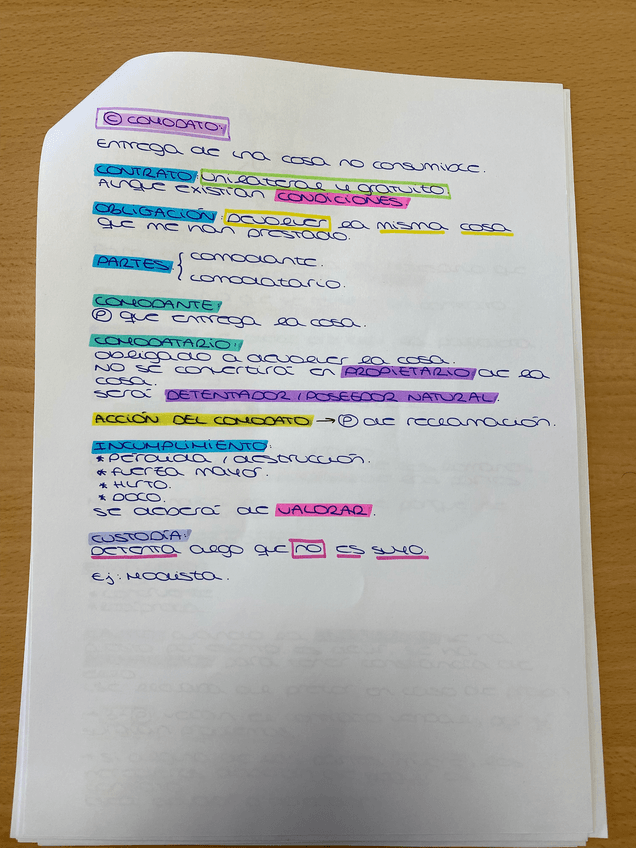 © COMODATO:
Entrega de una cosa no consumible.
CONTRATO: unilateral y gratuito
Aunque existían CONDICIONES
OBLIGACIÓN: DEVOLVER la misma cosa
que me han prestado.
PARTES { comodante.
comodatario.
COMODANTE
Ⓟ que entrega la cosa.
COMODATARIO:
obligado a devolver la cosa.
NO se convertirá en PROPIETARIO de la
cosa.
será DETENTADOR / POSEEDOR NATURAL.
ACCIÓN DEL COMODATO → Ⓟ de reclamación.
INCUMPLIMIENTO:
* PÉRDIDA / destrucción.
* Fuerza mayor.
* Hurto.
* DOLO.
se deberá de VALORAR.
CUSTODIA:
DETENTA algo que NO es suyo.
Ej: Modista.